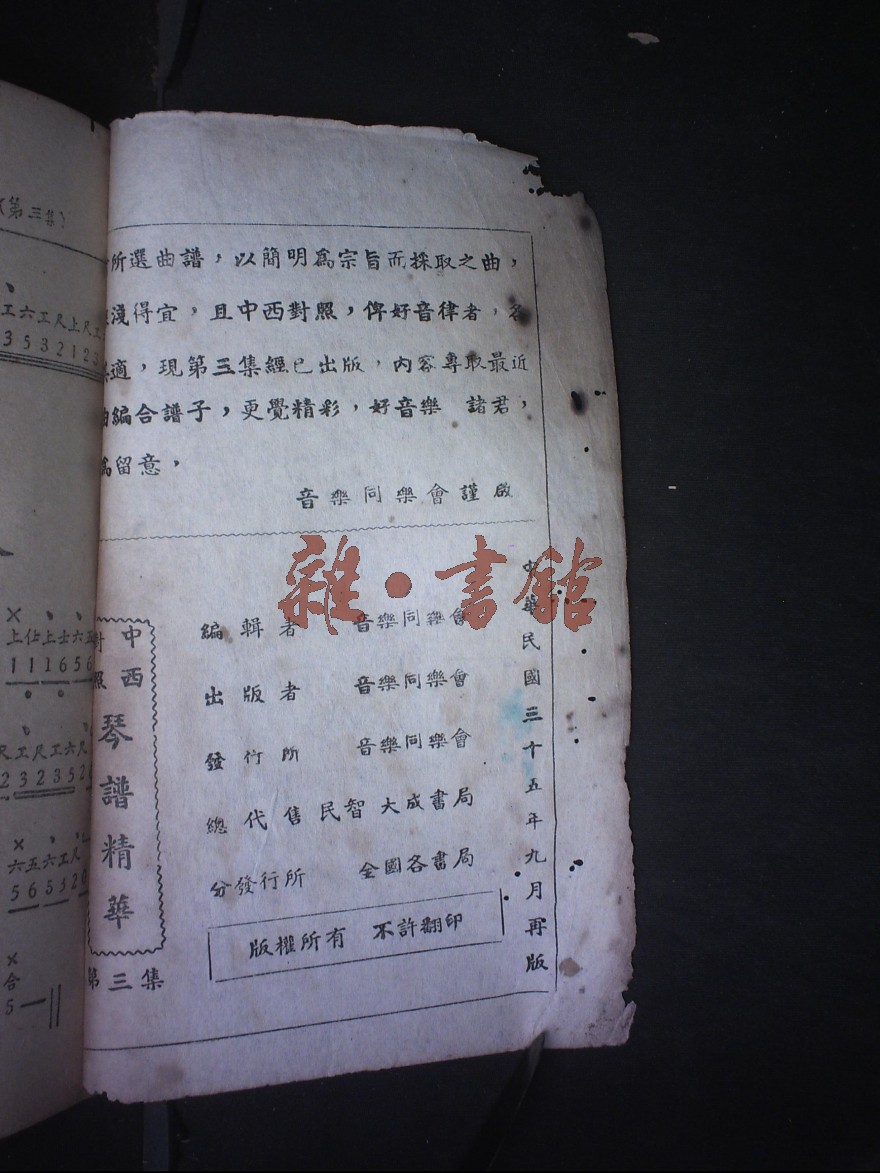 (第三集)
工六工尺上尺工
3532123
所選曲譜，以簡明為宗旨而採取之曲，
淺得宜，且中西對照，俾好音律者，各
適，現第三集經已出版，內容專取最近
曲編合譜子，更覺精彩，好音樂　諸君，
為留意，
音樂同樂會謹啟
雜•書館
中華民國三十五年九月再版
編輯者　音樂同樂會
出版者　音樂同樂會
發行所　音樂同樂會
總代售　民智　大成書局
分發行所　全國各書局
版權所有　不許翻印
中西
對照
琴譜精華
第三集
上仩上士六五
111656
尺工尺工六尺
232352
六五六工尺
56532
合
5—